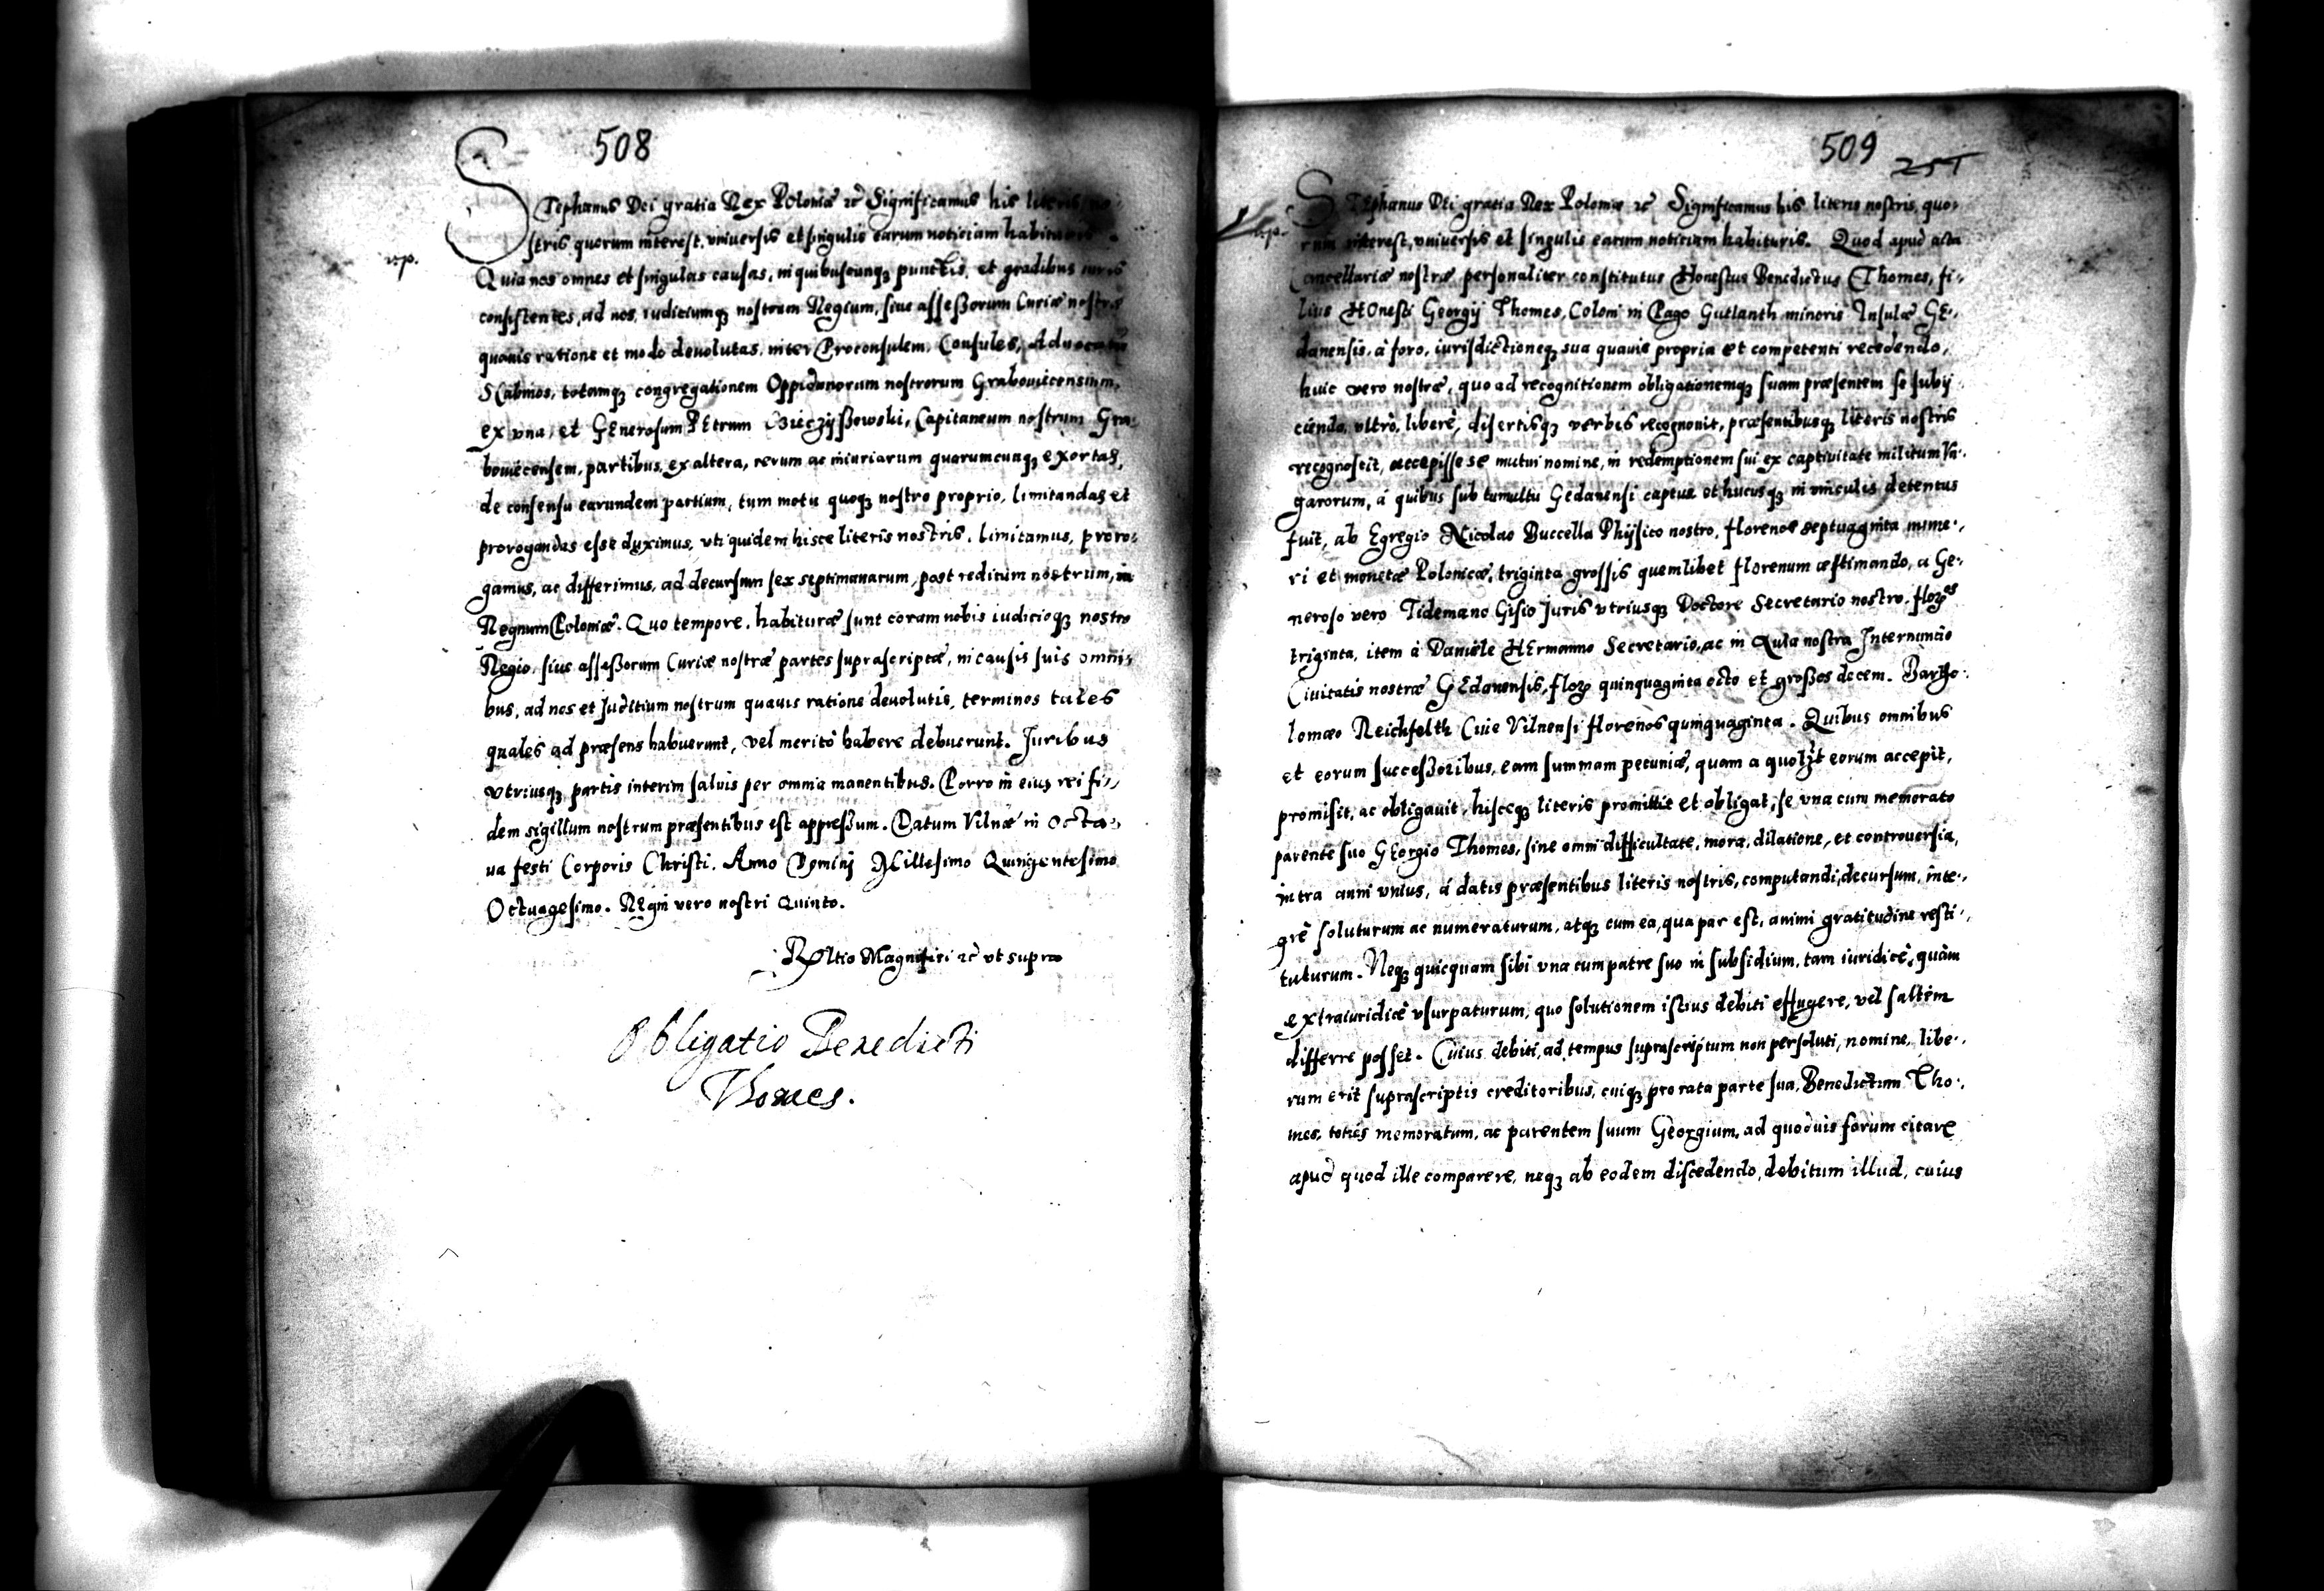 508
STephanus Dei gratia Rex Poloniæ etc Significamus his literis no-
stris quorum interest, vniuersis et singulis earum noticiam habituris.
vp.
Quia nos omnes et singulas causas, in quibuscunq punctis, et gradibus iuris
consistentes, ad nos, iudiciumq nostrum Regium, siue assessorum Curiæ nostræ
quauis ratione et modo deuolutas, inter Proconsulem, Consules, Aduocatum
Scabinos, totamq congregationem Oppidanorum nostrorum Grabouiecensium,
ex vna, et GEnerosum PEtrum Capitaneum nostrum Gra-
bouiecensem, partibus, ex altera, rerum ac iniuriarum quarumcunq exortas,
de consensu earundem partium, tum motu quoq nostro proprio, limitandas et
prorogandas esse duximus, vti quidem hisce literis nostris, limitamus, proro-
gamus, ac differimus, ad decursum sex septimanarum, post reditum nostrum, in
Regnum Poloniæ. Quo tempore, habituræ sunt coram nobis iudicioq nostro
Regio, siue assessorum Curiæ nostræ partes suprascriptæ, in causis suis omni-
bus, ad nos et Juditium nostrum quauis ratione deuolutis, terminos tales
quales ad præsens habuerunt, vel merito habere debuerunt. Juribus
vtriusq partis interim saluis per omnia manentibus. Porro in eius rei fi-
dem sigillum nostrum præsentibus est appressum. Datum Vilnæ in octa-
ua festi Corporis Christi. Anno Domini Millesimo Quingentesimo
Octuagesimo. REgni vero nostri Quinto.
Reltio Magnifici etc vt supra
Obligatio Benedicti
Thomes.
509
251
STEphanus DEi gratia Rex Poloniæ etc Significamus his literis nostris, quo-
vp.
rum interest, vniuersis et singulis earum noticiam habituris. Quod apud acta
Cancellariæ nostræ personaliter constitutus Honestus Benedictus Thomes, fi-
lius HOnesti Georgij Thomes, Coloni in Pago Gutlanth minoris Insulæ GE-
danensis, à foro, iurisdictioneq sua quauis propria et competenti recedendo,
huic vero nostræ, quo ad recognitionem obligationemq suam præsentem se subij
ciendo, vltrò, liberè, disertisq verbis recognouit, præsentibusq literis nostris
recognoscit, accepisse se mutui nomine, in redemptionem sui ex captiuitate militum Vn-
garorum, à quibus sub tumultu Gedanensi captus et hucusq in vinculis detentus
fuit, ab Egregio Nicolao Buccella Physico nostro, florenos septuaginta nume-
ri et monetæ Polonicæ, triginta grossis quemlibet florenum æstimando, a Ge-
neroso vero Tidemano Gisio Juris vtriusq Doctore Secretario nostro, flores
triginta, item à Daniele HErmanno Secretario, ac in Aula nostra Internuncio
Ciuitatis nostræ GEdanensis, flor quinquaginta octo et grossos decem. Bartho-
lomæo Reichfelth Ciue Vilnensi florenos quinquaginta. Quibus omnibus
et eorum successoribus, eam summam pecuniæ, quam a quolibet eorum accepit,
promisit, ac obligauit, hisceq literis promittit et obligat, se vna cum memorato
parente suo GEorgio Thomes, sine omni difficultate, mora, dilatione, et controuersia,
intra anni vnius, à datis præsentibus literis nostris, computandi, decursum, inte-
grè soluturum ac numeraturum, atq cum ea, qua par est, animi gratitudine resti-
tuturum. Neq quicquam sibi vna cum patre suo in subsidium, tam iuridicè, quàm
extraiuridicè vsurpaturum, quo solutionem istius debiti effugere, vel saltèm
differre posset. Cuius debiti, ad tempus suprascriptum non persoluti, nomine, libe-
rum erit suprascriptis creditoribus, cuiq pro rata parte sua, Benedictum Tho-
mes, toties memoratum, ac parentem suum Georgium, ad quoduis forum citare
apud quod ille comparere, neq ab eodem discedendo, debitum illud, cuius